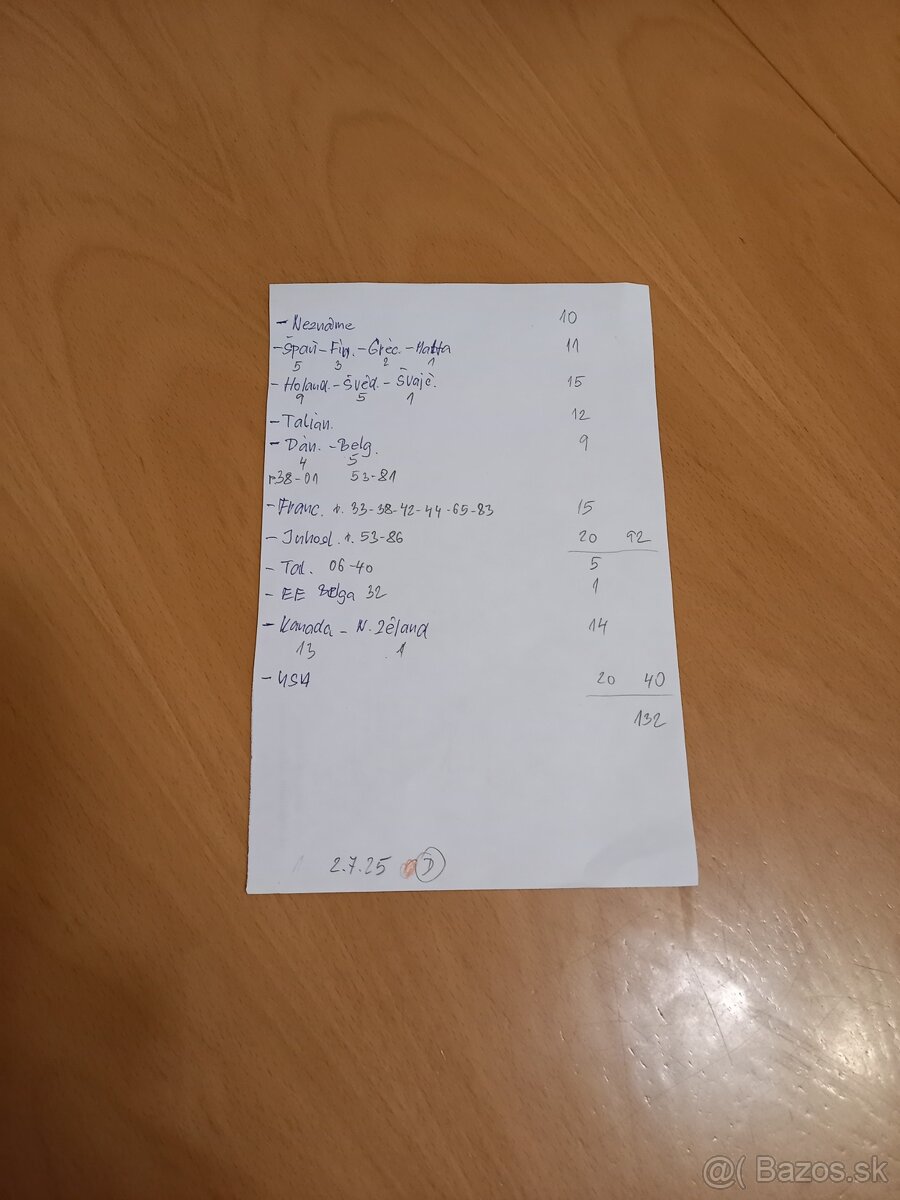 - Neznáme 10
- Špan - Fin. - Gréc. - Malta 11
5 3 2 1
- Holand. - Švéd. - Švajč. 15
9 5 1
- Talian. 12
- Dán. - Belg. 9
4 5
r.38-01 53-81
- Franc. r. 33-38-42-44-65-83 15
- Juhosl. r. 53-86 20 92
- Tal. 06-40 5
- EE Belga 32 1
- Kanada - N. Zéland 14
13 1
- USA 20 40
132
2.7.25 D
@( Bazos.sk